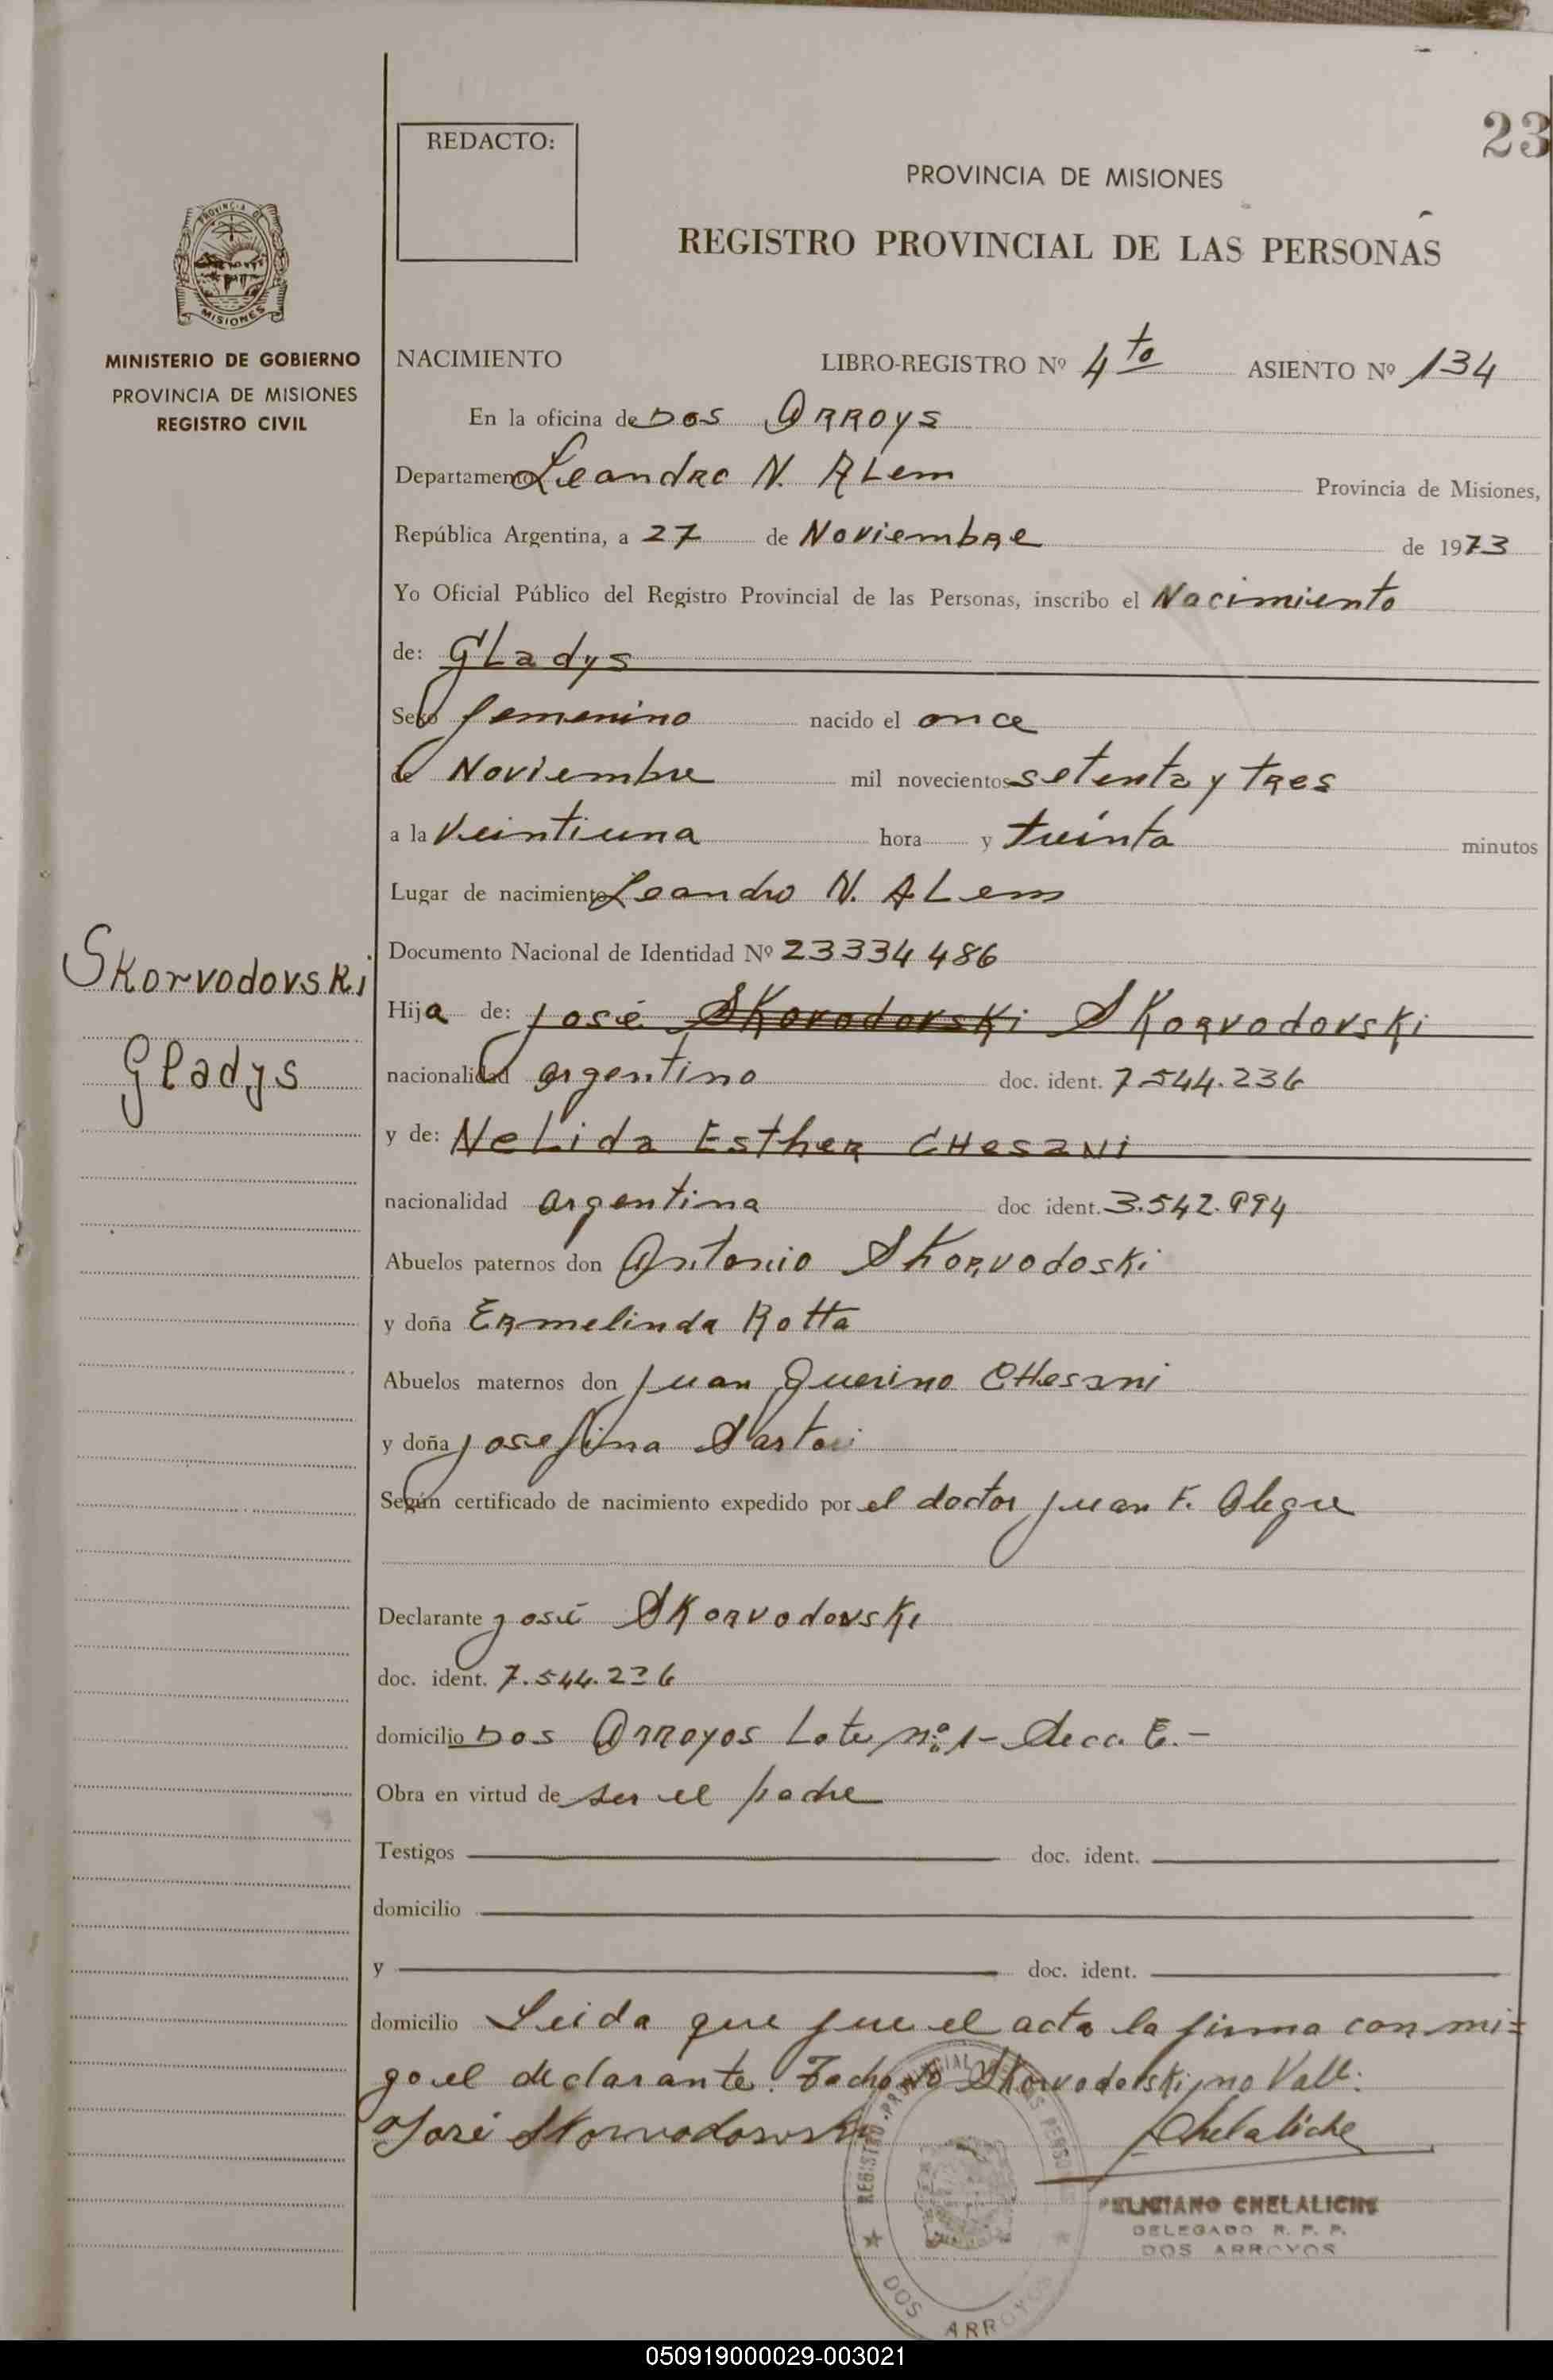 23
REDACTO:
PROVINCIA DE MISIONES
REGISTRO PROVINCIAL DE LAS PERSONAS
PROVINCIA DE
MISIONES
MINISTERIO DE GOBIERNO
PROVINCIA DE MISIONES
REGISTRO CIVIL
NACIMIENTO LIBRO-REGISTRO Nº 4to ASIENTO Nº 134
En la oficina de Dos Arroys
Departamento Leandro N. Alem Provincia de Misiones,
República Argentina, a 27 de Noviembre de 1973
Yo Oficial Público del Registro Provincial de las Personas, inscribo el Nacimiento
de: Gladys
Sexo femenino nacido el once
de Noviembre mil novecientos setenta y tres
a la veintiuna hora y treinta minutos
Lugar de nacimiento Leandro N. Alem
Documento Nacional de Identidad Nº 23334486
Skorvodovski
Gladys
Hija de: José Skorodovski Skorvodovski
nacionalidad argentino doc. ident. 7544.236
y de: Nelida Esther CHesani
nacionalidad argentina doc ident. 3.542.994
Abuelos paternos don Antonio Skorvodoski
y doña Ermelinda Rotta
Abuelos maternos don Juan Querino CHesani
y doña Josefina Sartori
Según certificado de nacimiento expedido por el doctor Juan F. Alegre
Declarante José Skorvodovski
doc. ident. 7.544.236
domicilio Dos Arroyos Lote nº 1- Secc. E.-
Obra en virtud de ser el padre
Testigos doc. ident.
domicilio
y doc. ident.
domicilio Leida que fue el acta la firma conmi=
go el declarante. Tachado Skorvodovski, no Vale.
José Skorvodowski Chelaliche
REGISTRO PROVINCIAL DE LAS PERSONAS
DOS ARROYOS
FELICIANO CHELALICHE
DELEGADO R. P. P.
DOS ARROYOS
050919000029-003021